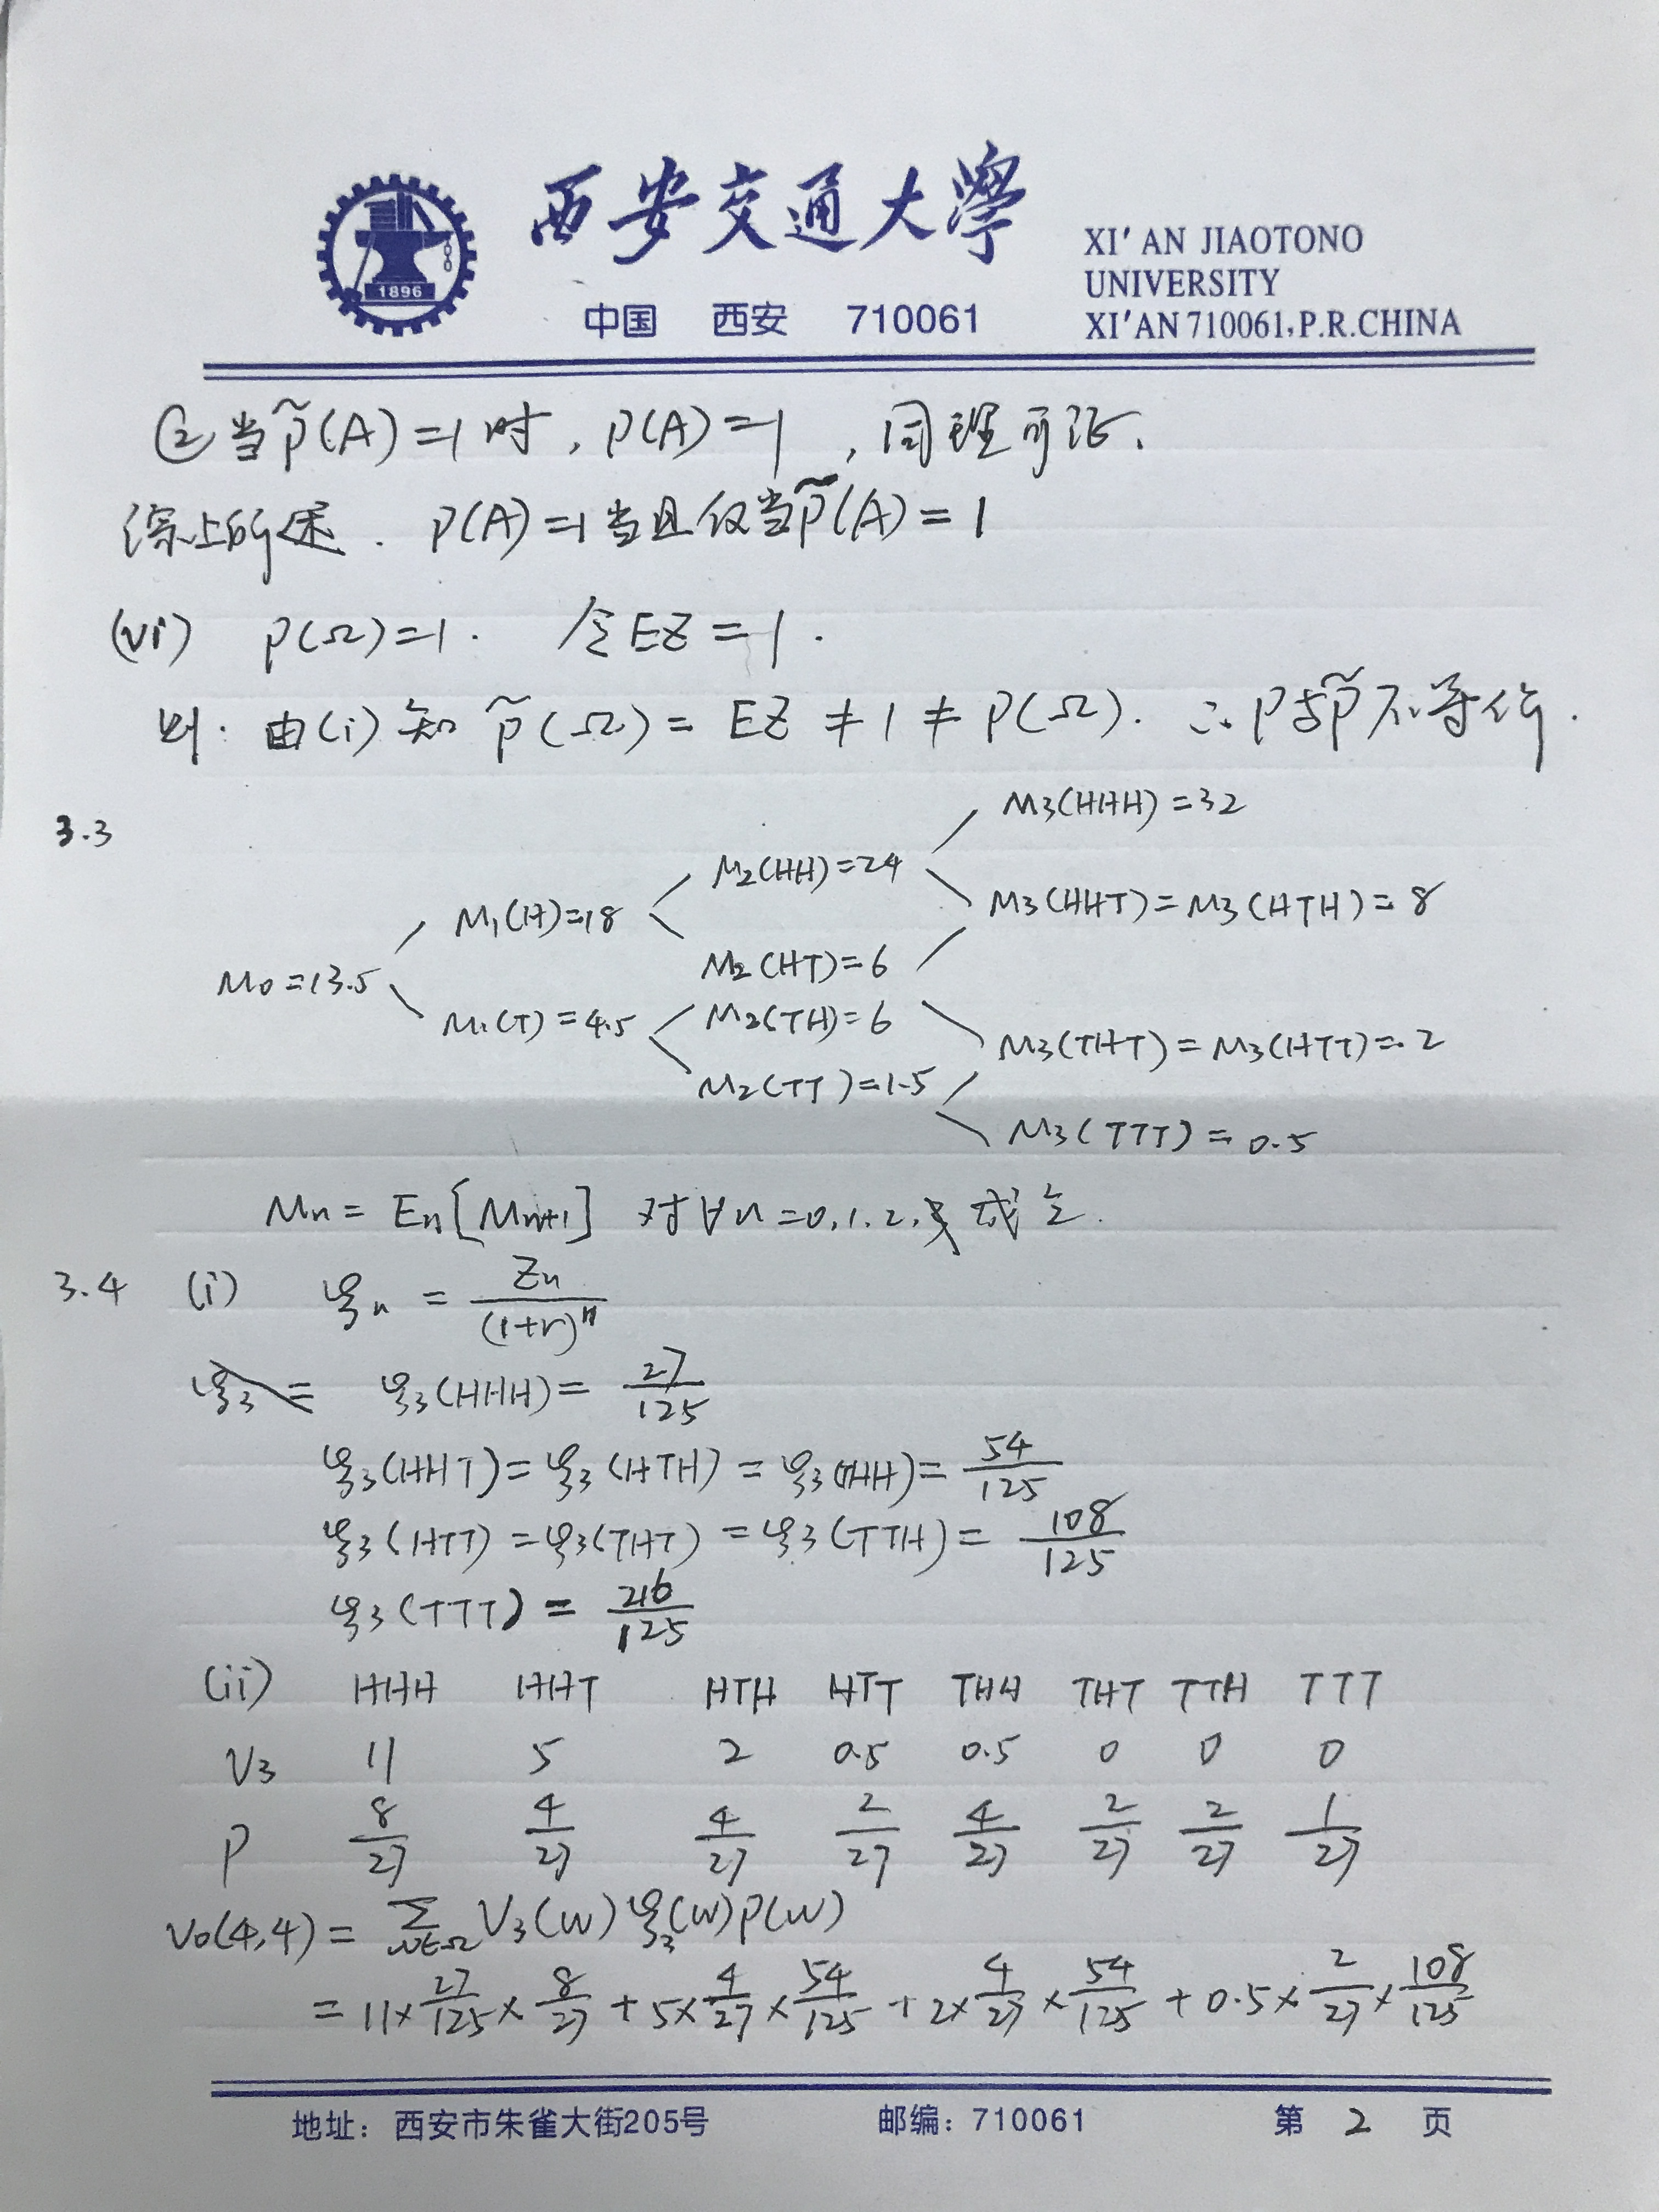 西安交通大學
中国 西安 710061
XI'AN JIAOTONO
UNIVERSITY
XI'AN 710061,P.R.CHINA
1896
② 当P̃(A)=1时,P(A)=1,同理可证.
综上所述. P(A)=1当且仅当P̃(A)=1
(vi) P(Ω)=1. 令EZ=1.
则.由(i)知 P̃(Ω)=EZ≠1≠P(Ω). ∴P与P̃不等价.
3.3
M3(HHH)=32
M2(HH)=24
M1(H)=18
M3(HHT)=M3(HTH)=8
M2(HT)=6
M0=13.5
M1(T)=4.5
M2(TH)=6
M3(THT)=M3(HTT)=2
M2(TT)=1.5
M3(TTT)=0.5
Mn=En[Mn+1] 对∀n=0,1,2,成立.
3.4 (i) ξn = Zn/(1+r)^n
ξ3= ξ3(HHH)= 27/125
ξ3(HHT)=ξ3(HTH)=ξ3(THH)= 54/125
ξ3(HTT)=ξ3(THT)=ξ3(TTH)= 108/125
ξ3(TTT)= 216/125
(ii) HHH HHT HTH HTT THH THT TTH TTT
V3 11 5 2 0.5 0.5 0 0 0
P 8/27 4/27 4/27 2/27 4/27 2/27 2/27 1/27
V0(4,4)= Σω∈Ω V3(ω)ξ3(ω)P(ω)
=11×27/125×8/27+5×4/27×54/125+2×4/27×54/125+0.5×2/27×108/125
地址:西安市朱雀大街205号 邮编:710061 第 2 页